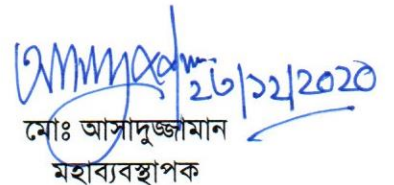 ২৩/১২/২০২০
মোঃ আসাদুজ্জামান
মহাব্যবস্থাপক